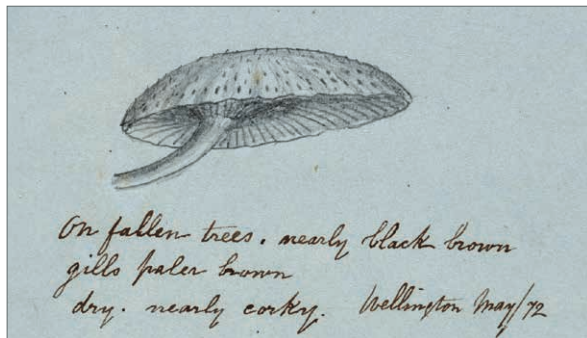 On fallen trees. nearly black brown
gills paler brown
dry. nearly corky. Wellington May/72